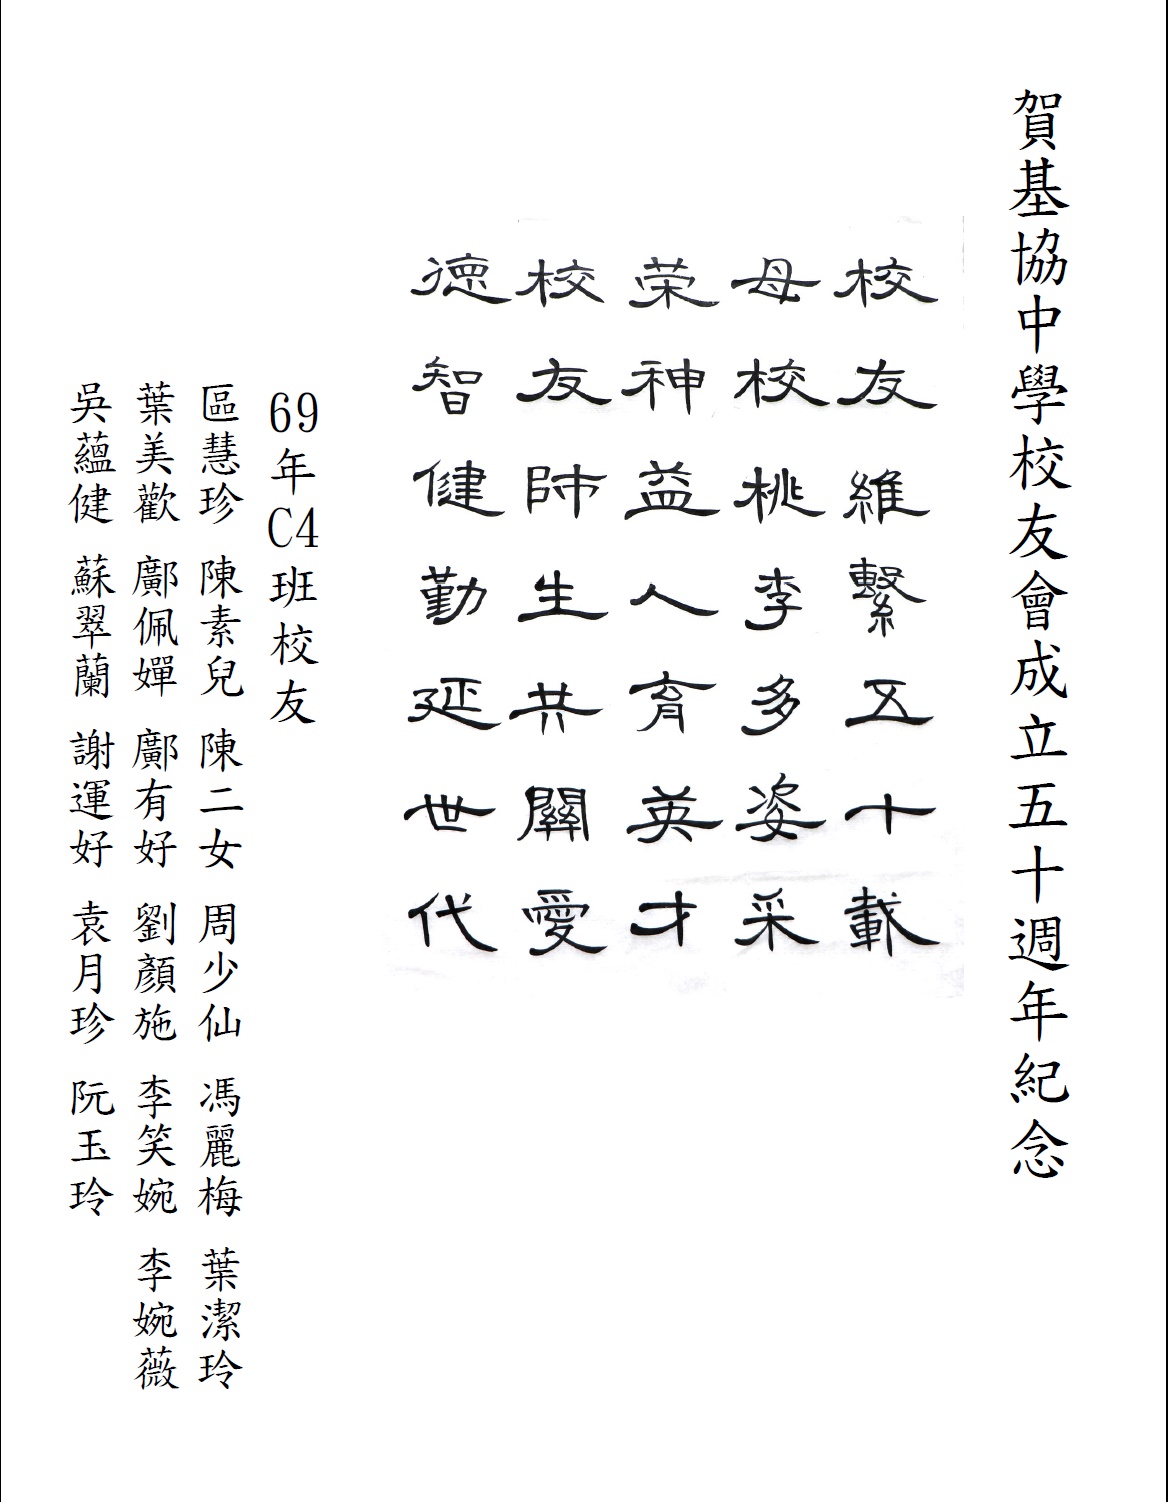 賀基協中學校友會成立五十週年紀念
校友維繫五十載
母校桃李多姿采
荣神益人育英才
校友師生共關愛
德智健勤延世代
69年C4班校友
區慧珍 陳素兒 陳二女 周少仙 馮麗梅 葉潔玲
葉美歡 鄺佩嬋 鄺有好 劉顏施 李笑婉 李婉薇
吳蘊健 蘇翠蘭 謝運好 袁月珍 阮玉玲